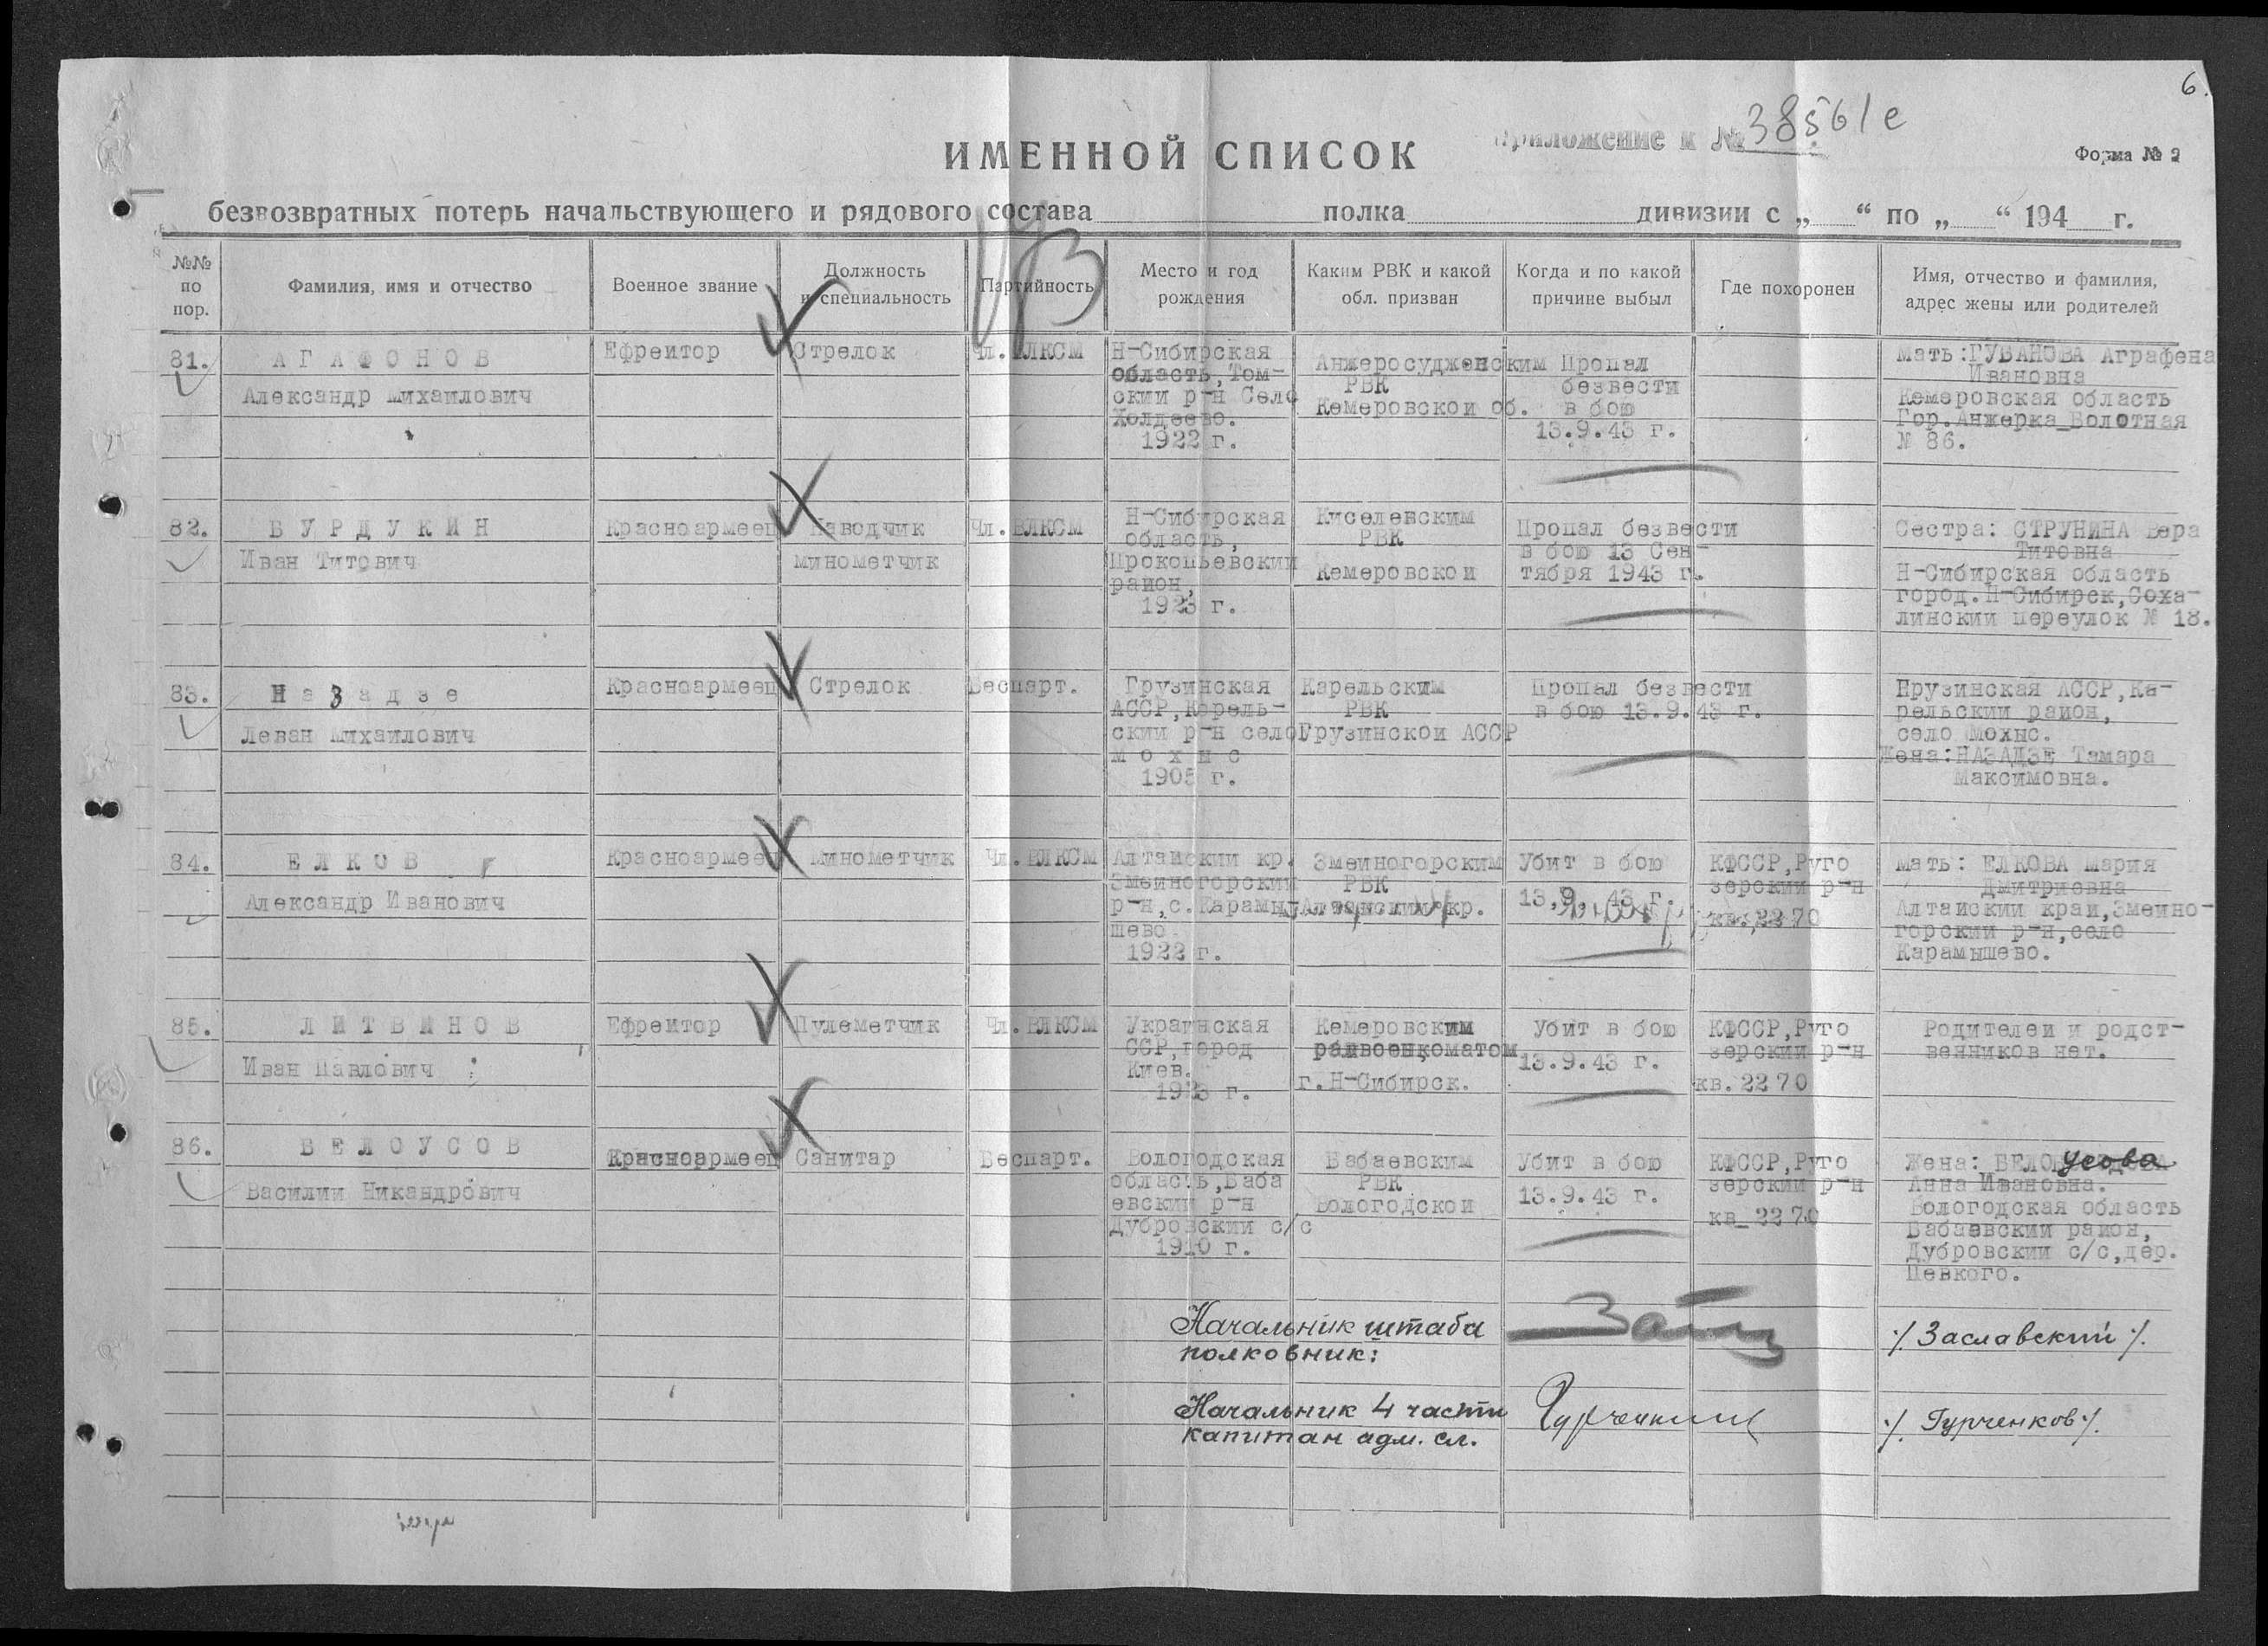 6.
Приложение к № 38561с
ИМЕННОЙ СПИСОК
Форма № 2
безвозвратных потерь начальствующего и рядового состава полка дивизии с „ “ по „ “ 194 г.
№№ по пор.
Фамилия, имя и отчество
Военное звание
Должность и специальность
Партийность
Место и год рождения
Каким РВК и какой обл. призван
Когда и по какой причине выбыл
Где похоронен
Имя, отчество и фамилия, адрес жены или родителей
81.
АГАФОНОВ
Александр Михаилович
Ефреитор
Стрелок
Чл. ВЛКСМ
Н-Сибирская
область, Том-
скии р-н Село
Холдеево.
1922 г.
Анжеросудженским
РВК
Кемеровскои об.
Пропал
безвести
в бою
13.9.43 г.
Мать: ГУБАНОВА Аграфена
Ивановна
Кемеровская область
Гор. Анжерка_Болотная
№ 86.
82.
БУРДУКИН
Иван Титович
Красноармеец
Наводчик
минометчик
Чл. ВЛКСМ
Н-Сибирская
область,
Прокопьевскии
раион,
1923 г.
Киселевским
РВК
Кемеровскои
Пропал безвести
в бою 13 Сен-
тября 1943 г.
Сестра: СТРУНИНА Вера
Титовна
Н-Сибирская область
город. Н-Сибирск, Соха-
линскии переулок № 18.
83.
Назадзе
Леван Михаилович
Красноармеец
Стрелок
Беспарт.
Грузинская
АССР, Корель-
скии р-н село
Мохис
1905 г.
Карельским
РВК
Грузинскои АССР
Пропал безвести
в бою 13.9.43 г.
Грузинская АССР, Ка-
рельскии раион,
село Мохис.
Жена: НАЗАДЗЕ Тамара
Максимовна.
84.
ЕЛКОВ
Александр Иванович
Красноармеец
Минометчик
Чл. ВЛКСМ
Алтаискии кр.
Змеиногорскии
р-н, с. Карамы-
шево
1922 г.
Змеиногорским
РВК
Алтаискии кр.
Убит в бою
13.9. 43 г.
КФССР, Руго
зерскии р-н
кв. 2270
Мать: ЕЛКОВА Мария
Дмитриевна
Алтаискии краи, Змеино-
горскии р-н, село
Карамышево.
85.
ЛИТВИНОВ
Иван Павлович
Ефреитор
Пулеметчик
Чл. ВЛКСМ
Украинская
ССР, город
Киев.
1923 г.
Кемеровским
раивоенкоматом
г. Н-Сибирск.
Убит в бою
13.9.43 г.
КФССР, Руго
зерскии р-н
кв. 2270
Родителеи и родст-
венников нет.
86.
БЕЛОУСОВ
Василии Никандрович
Красноармеец
Санитар
Беспарт.
Вологодская
область, Баба
евскии р-н
Дубровскии с/с
1910 г.
Бабаевским
РВК
Вологодскои
Убит в бою
13.9.43 г.
КФССР, Руго
зерскии р-н
кв_2270
Жена: БЕЛОусова
Анна Ивановна.
Вологодская область
Бабаевскии раион,
Дубровскии с/с, дер.
Певкого.
Начальник штаба
полковник:
/. Заславский /.
Начальник 4 части
капитан адм. сл.
/. Гурченков /.